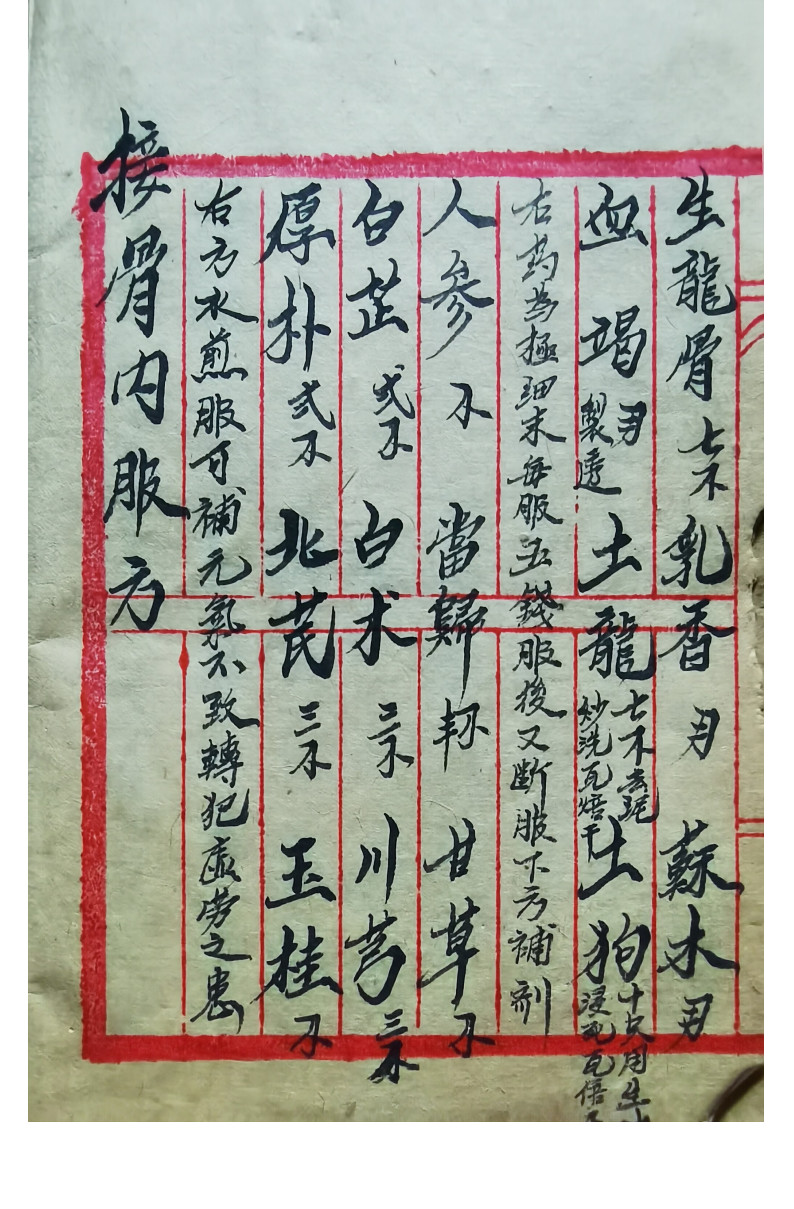 生龍骨七不乳香 蘇木
血竭製透土龍七不去泥炒洗瓦焙干土狗十只用生浸死瓦焙
右药為極細末每服五錢服後又断服下方補剂
人參不 當歸 甘草不
白芷弍不 白术三不 川芎三不
厚朴弍不 北芪三不 玉桂不
右方水煎服可補元氣不致轉犯虚劳之患
接骨内服方